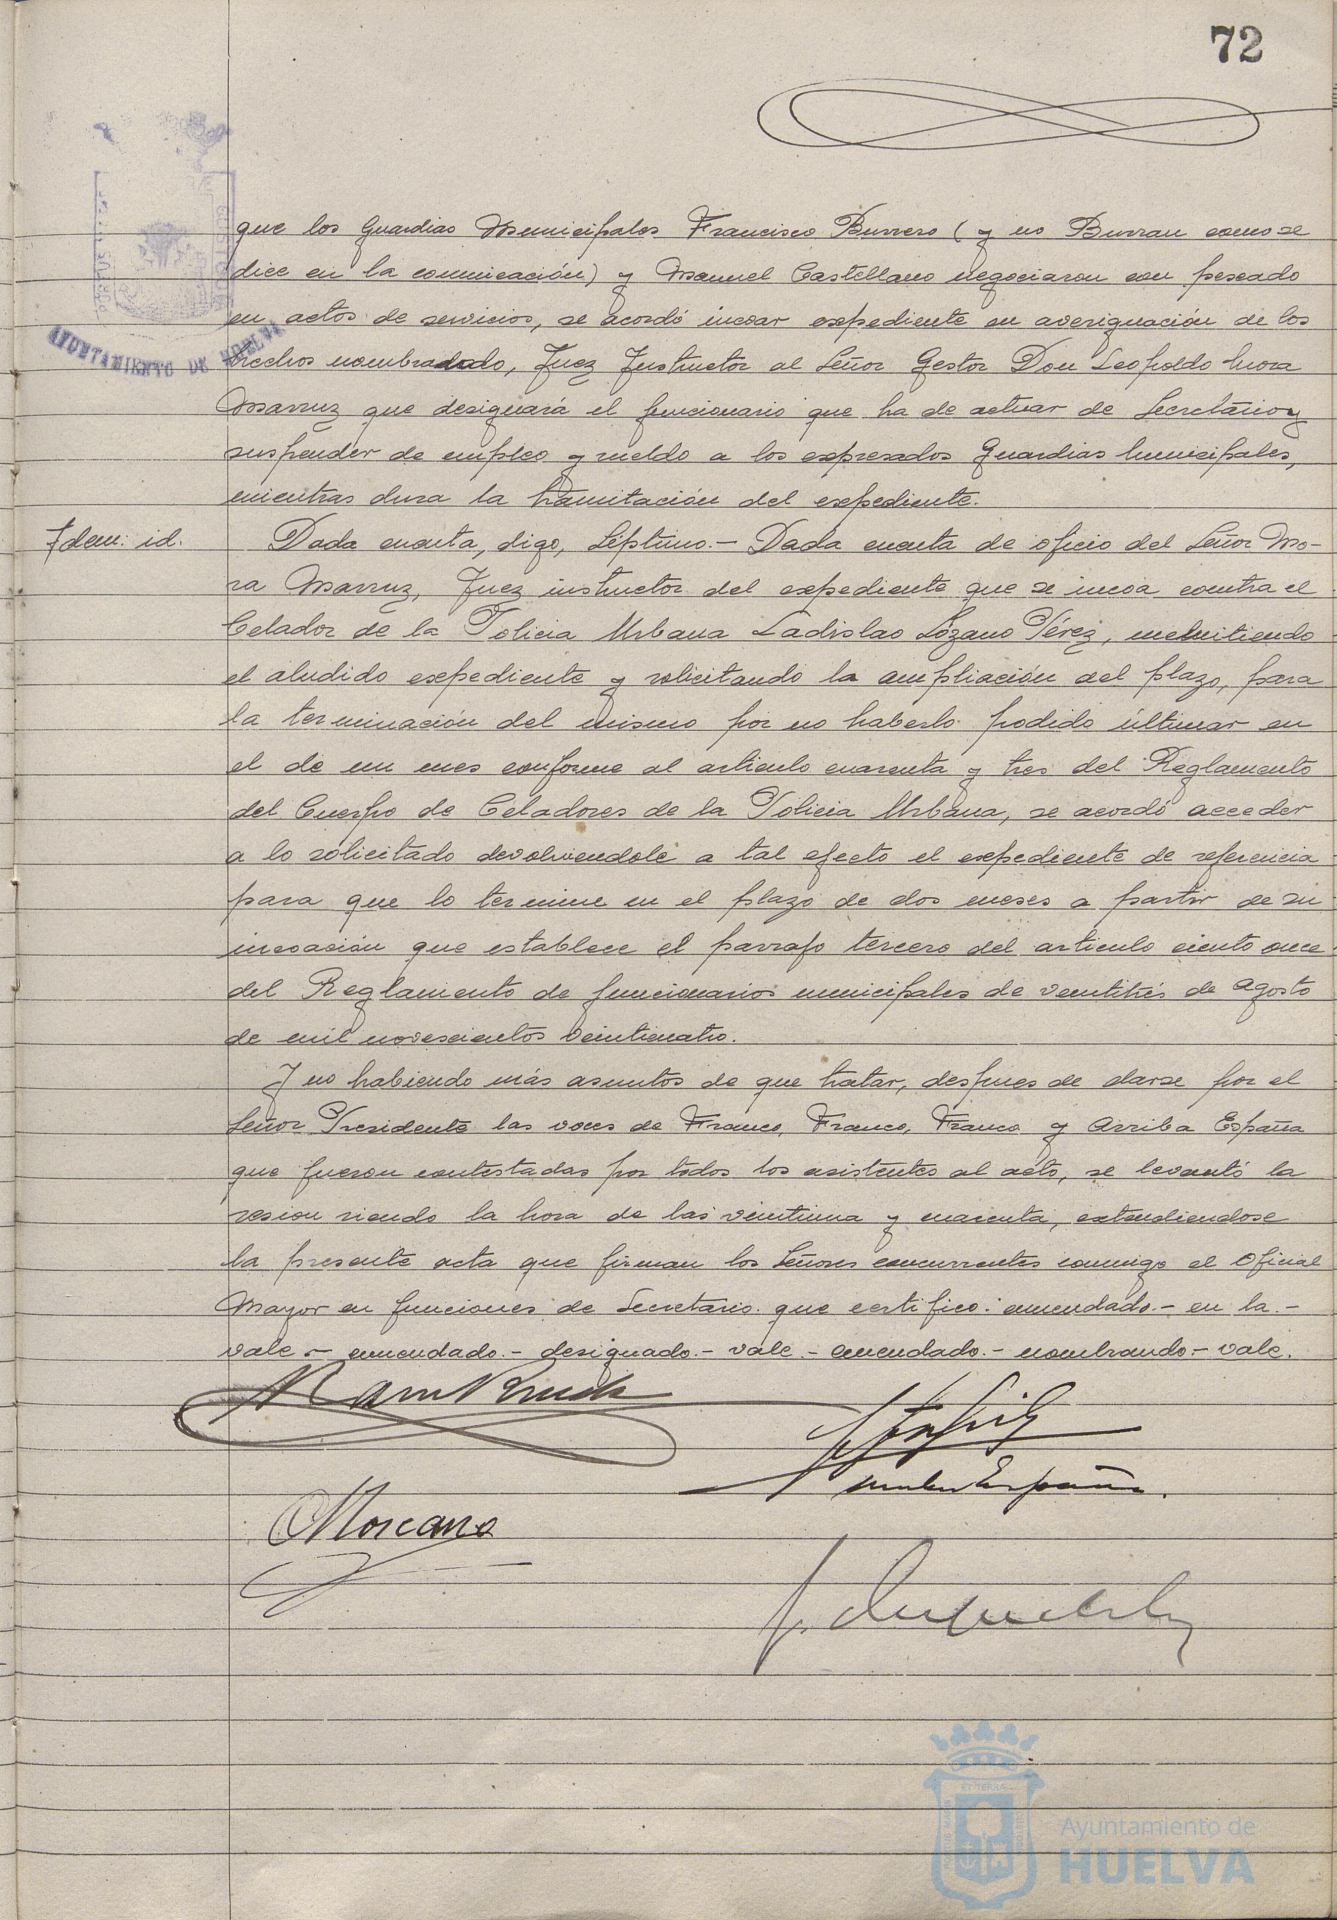 72
que los Guardias Municipales Francisco Burrero (y no Burran como se
dice en la comunicación) y Manuel Castellano negociaron con pescado
en actos de servicios, se acordó incoar expediente en averiguación de los
hechos nombrando, Juez Instructor al Señor Gestor Don Leopoldo Mora
Marruz que designará el funcionario que ha de actuar de Secretario y
suspender de empleo y sueldo a los expresados Guardias Municipales,
mientras dura la tramitación del expediente.
Idem: id.
Dada cuenta, digo, Séptimo.- Dada cuenta de oficio del Señor Mo-
ra Marruz, Juez instructor del expediente que se incoa contra el
Celador de la Policia Urbana Ladislao Lozano Pérez, remitiendo
el aludido expediente y solicitando la ampliación del plazo, para
la terminación del mismo por no haberlo podido últimar en
el de un mes conforme al articulo cuarenta y tres del Reglamento
del Cuerpo de Celadores de la Policia Urbana, se acordó acceder
a lo solicitado devolviendole a tal efecto el expediente de referencia
para que lo termine en el plazo de dos meses a partir de su
incoación que establece el parrafo tercero del articulo ciento once
del Reglamento de funcionarios municipales de veintitrés de Agosto
de mil novescientos veinticuatro.
Y no habiendo más asuntos de que tratar, despues de darse por el
Señor Presidente las voces de Franco, Franco, Franco y Arriba España
que fueron contestadas por todos los asistentes al acto, se levantó la
sesion siendo la hora de las veintiuna y cuarenta, extendiendose
la presente acta que firman los Señores concurrentes conmigo el Oficial
Mayor en funciones de Secretario. que certifico: enmendado.- en la.-
vale.- enmendado.- designado.- vale.- enmendado.- nombrando.- vale.
AYUNTAMIENTO DE HUELVA
Ayuntamiento de
HUELVA